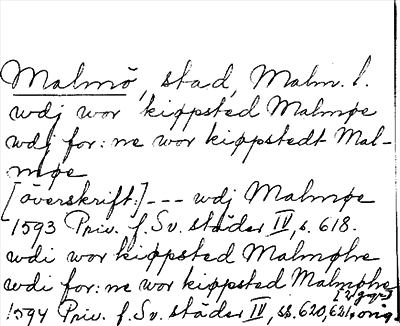 Malmö, stad, Malm. l.
wdj wor kiøpsted Malmøe
wdj for:ne wor kiøpstedt Mal-
møe
[överskrift:] --- wdj Malmøe
1593 Priv. f. Sv. städer IV, s. 618.
wdi wor kiøpsted Malmøhe
wdi for:ne wor kiøpsted Malmøhe
[2 ggr]
1594 Priv. f. Sv. städer IV, ss. 620, 621, orig.